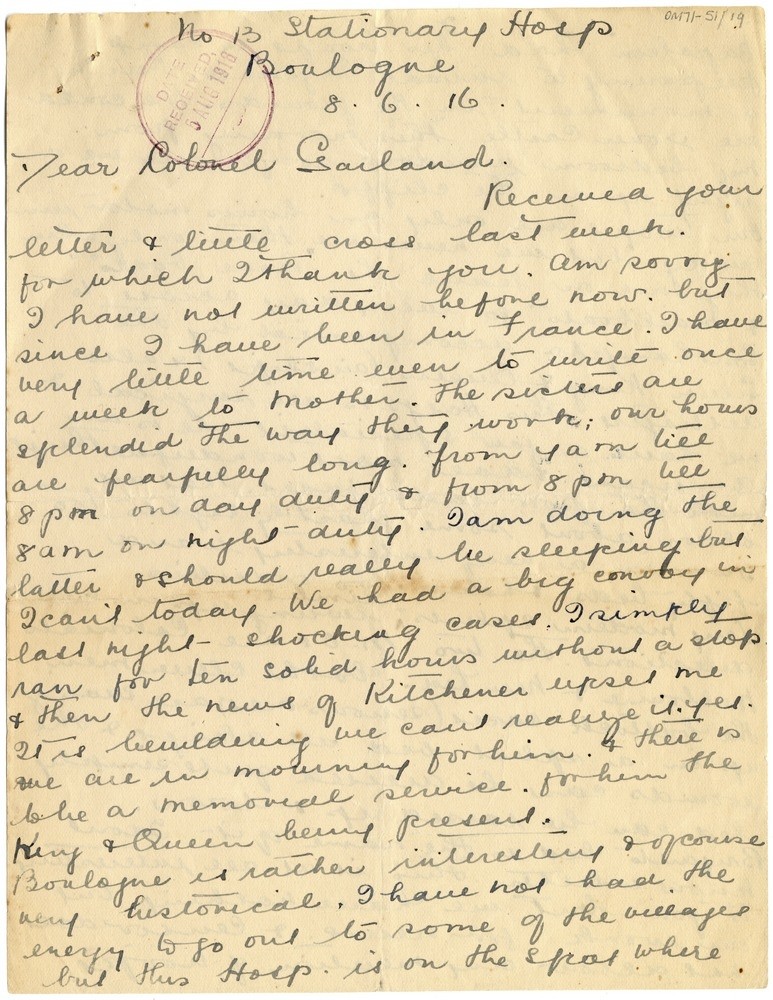 OM71-51/19
No 13 Stationary Hosp
Boulogne
8. 6. 16.
DATE
RECEIVED,
5 AUG 1916
Dear Colonel Garland.
Received your
letter & little cross last week.
for which I thank you. Am sorry
I have not written before now. but
since I have been in France. I have
very little time even to write once
a week to Mother. The sisters are
splendid the way they work; our hours
are fearfully long. from 7 am till
8 pm on day duty & from 8 pm till
8 am on night duty. I am doing the
latter & should really be sleeping but
I can't today. We had a big convoy in
last night - shocking cases. I simply
ran for ten solid hours without a stop.
& then the news of Kitchener upset me
It is bewildering we can't realize it. yet.
we are in mourning for him. & there is
to be a memorial service. for him the
King & Queen being present.
Boulogne is rather interesting & of course
very historical. I have not had the
energy to go out to some of the villages
but this Hosp. is on the spot where